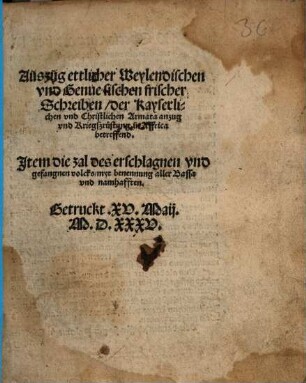 36
Auszüg ettlicher Meylendischen
vnd Genuesischen frischer
Schreiben / der Kayserli-
chen vnd Christlichen Armata anzug
vnd Kriegszrüstung, in Affrica
betreffend.
Item die zal des erschlagnen vnd
gefangnen volcks, mit benennung aller Bassa
vnd namhafften.
Getruckt .XV. Maij.
M. D. XXXV.